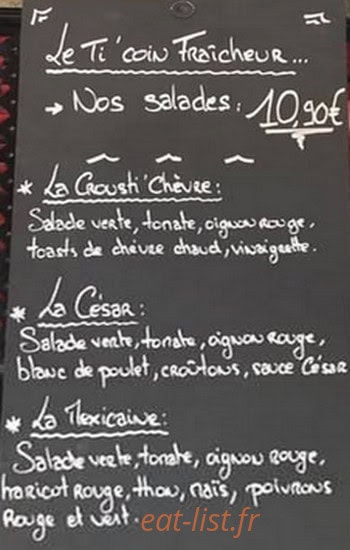 Le Ti'coin Fraîcheur...
→ Nos salades: 10,90€
* La Crousti'Chèvre:
Salade verte, tomate, oignon rouge,
toasts de chèvre chaud, vinaigrette.
* La César:
Salade verte, tomate, oignon rouge,
blanc de poulet, croûtons, sauce César
* La Mexicaine:
Salade verte, tomate, oignon rouge,
haricot rouge, thon, maïs, poivrons
rouge et vert.
eat-list.fr